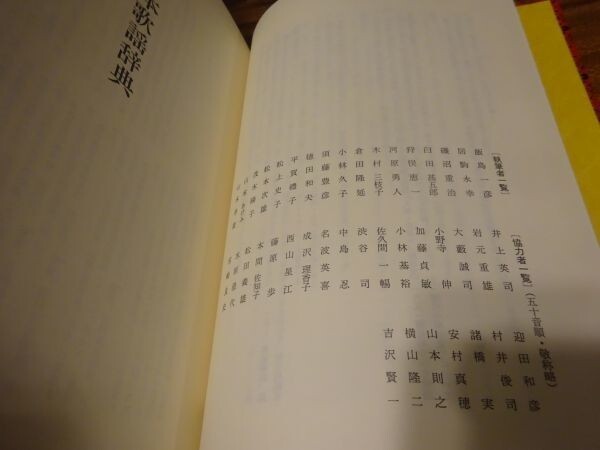 歌謡辞典
〔執筆者一覧〕
飯島一彦
居駒永幸
磯沼重治
臼田甚五郎
狩俣恵一
河原勇人
木村三枝子
倉田隆延
小林久子
須藤豊彦
徳田和夫
平賀禮子
松上史子
松本次雄
茂木陽子
〔協力者一覧〕（五十音順・敬称略）
井上英司
岩元重雄
大藪誠司
小野寺伸
加藤貞敏
小林基裕
佐久間一暢
渋谷司
中島忍
名波英喜
成沢理香子
西山星江
藤原歩
本間佐知子
松田義雄
迎田和彦
村井俊司
諸橋実
安村真穂
山本則之
横山隆二
吉沢賢一